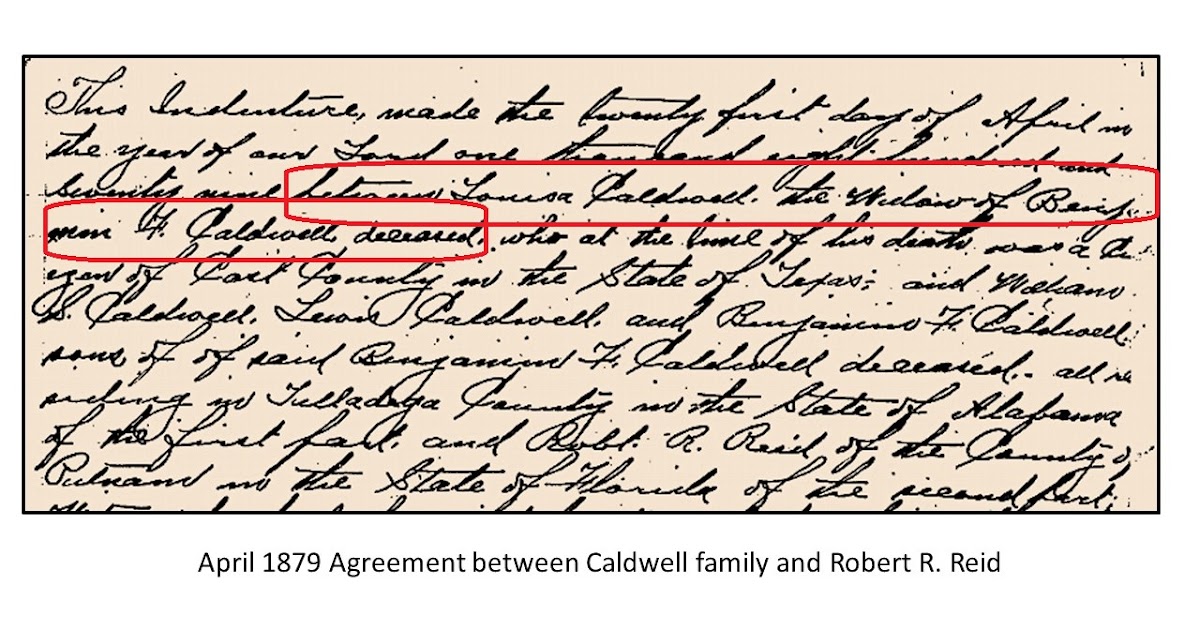 This Indenture, made the twenty first day of April in
the year of our Lord one thousand eight hundred and
seventy nine between Louisa Caldwell. the Widow of Benj
min F. Caldwell, deceased, who at the time of his death was a
of Cast County in the State of Texas; and William
S. Caldwell. Lewis Caldwell. and Benjamin F. Caldwell.
sons of of said Benjamin F. Caldwell deceased. all re
siding in Talladega County in the State of Alabama
of the first part. and Robt. R. Reid of the County o
Putnam in the State of Florida of the second part.
April 1879 Agreement between Caldwell family and Robert R. Reid